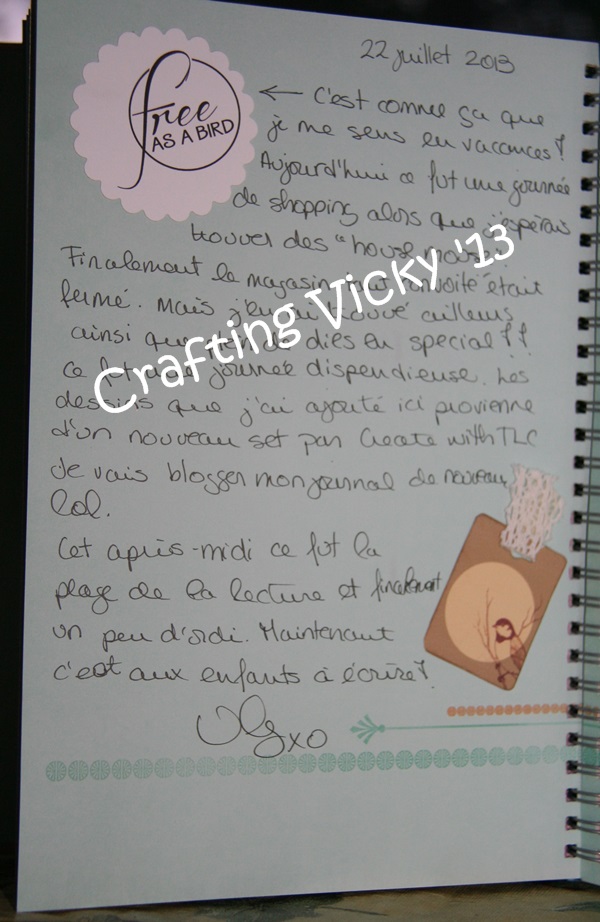 22 juillet 2013
free
AS A BIRD
← C'est comme ça que
je me sens en vacances!
Aujourd'hui ce fut une journée
de shopping alors que j'espérais
trouver des "house mouse".
Finalement le magasin convoité était
fermé. Mais j'en ai trouvé ailleurs
ainsi que de dies en special!!
ce fut une journée dispendieuse. Les
dessins que j'ai ajouté ici provienne
d'un nouveau set par Create with TLC
Je vais blogger mon journal de nouveau
lol.
Cet après-midi ce fut la
plage de la lecture et finalement
un peu d'ordi. Maintenant
c'est aux enfants à écrire!
xo
Crafting Vicky '13